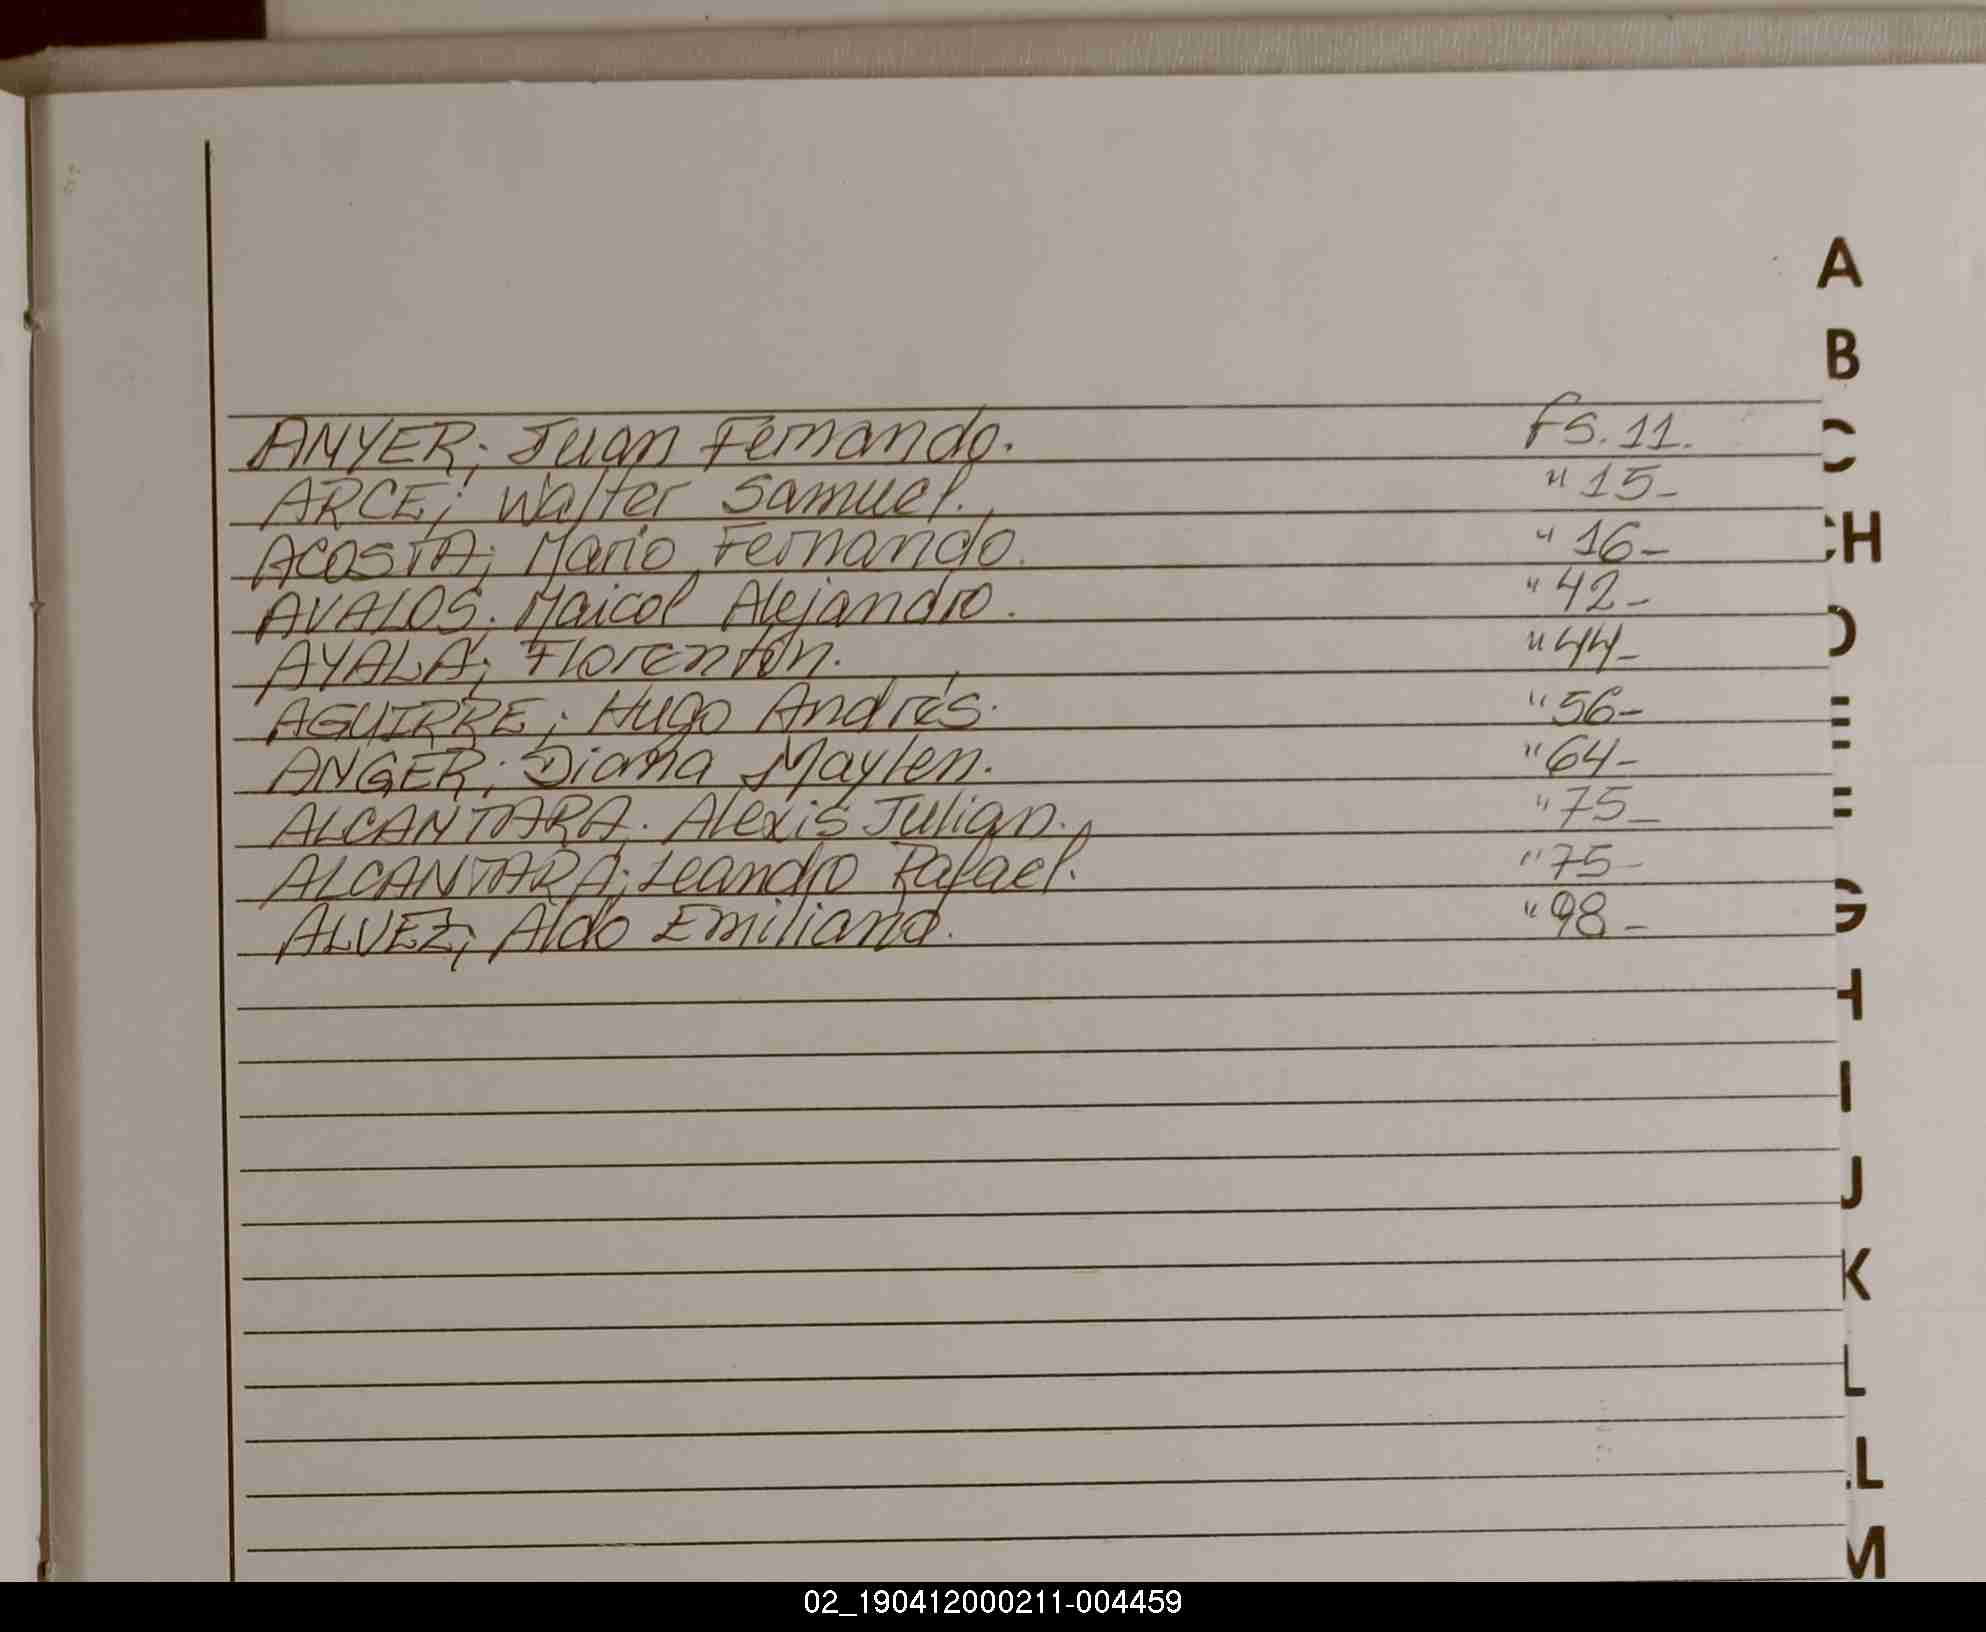 A
B
C
ANYER; Juan Fernando. Fs. 11.
ARCE; Walter Samuel. " 15-
CH
ACOSTA; Mario Fernando. " 16-
AVALOS; Maicol Alejandro. " 42-
D
AYALA; Florentín. " 44-
AGUIRRE; Hugo Andrés. " 56-
E
ANGER; Diana Maylen. " 64-
ALCANTARA; Alexis Julian. " 75-
F
ALCANTARA; Leandro Rafael. " 75-
ALVEZ; Aldo Emiliano. " 98-
G
H
I
J
K
L
LL
M
02_190412000211-004459